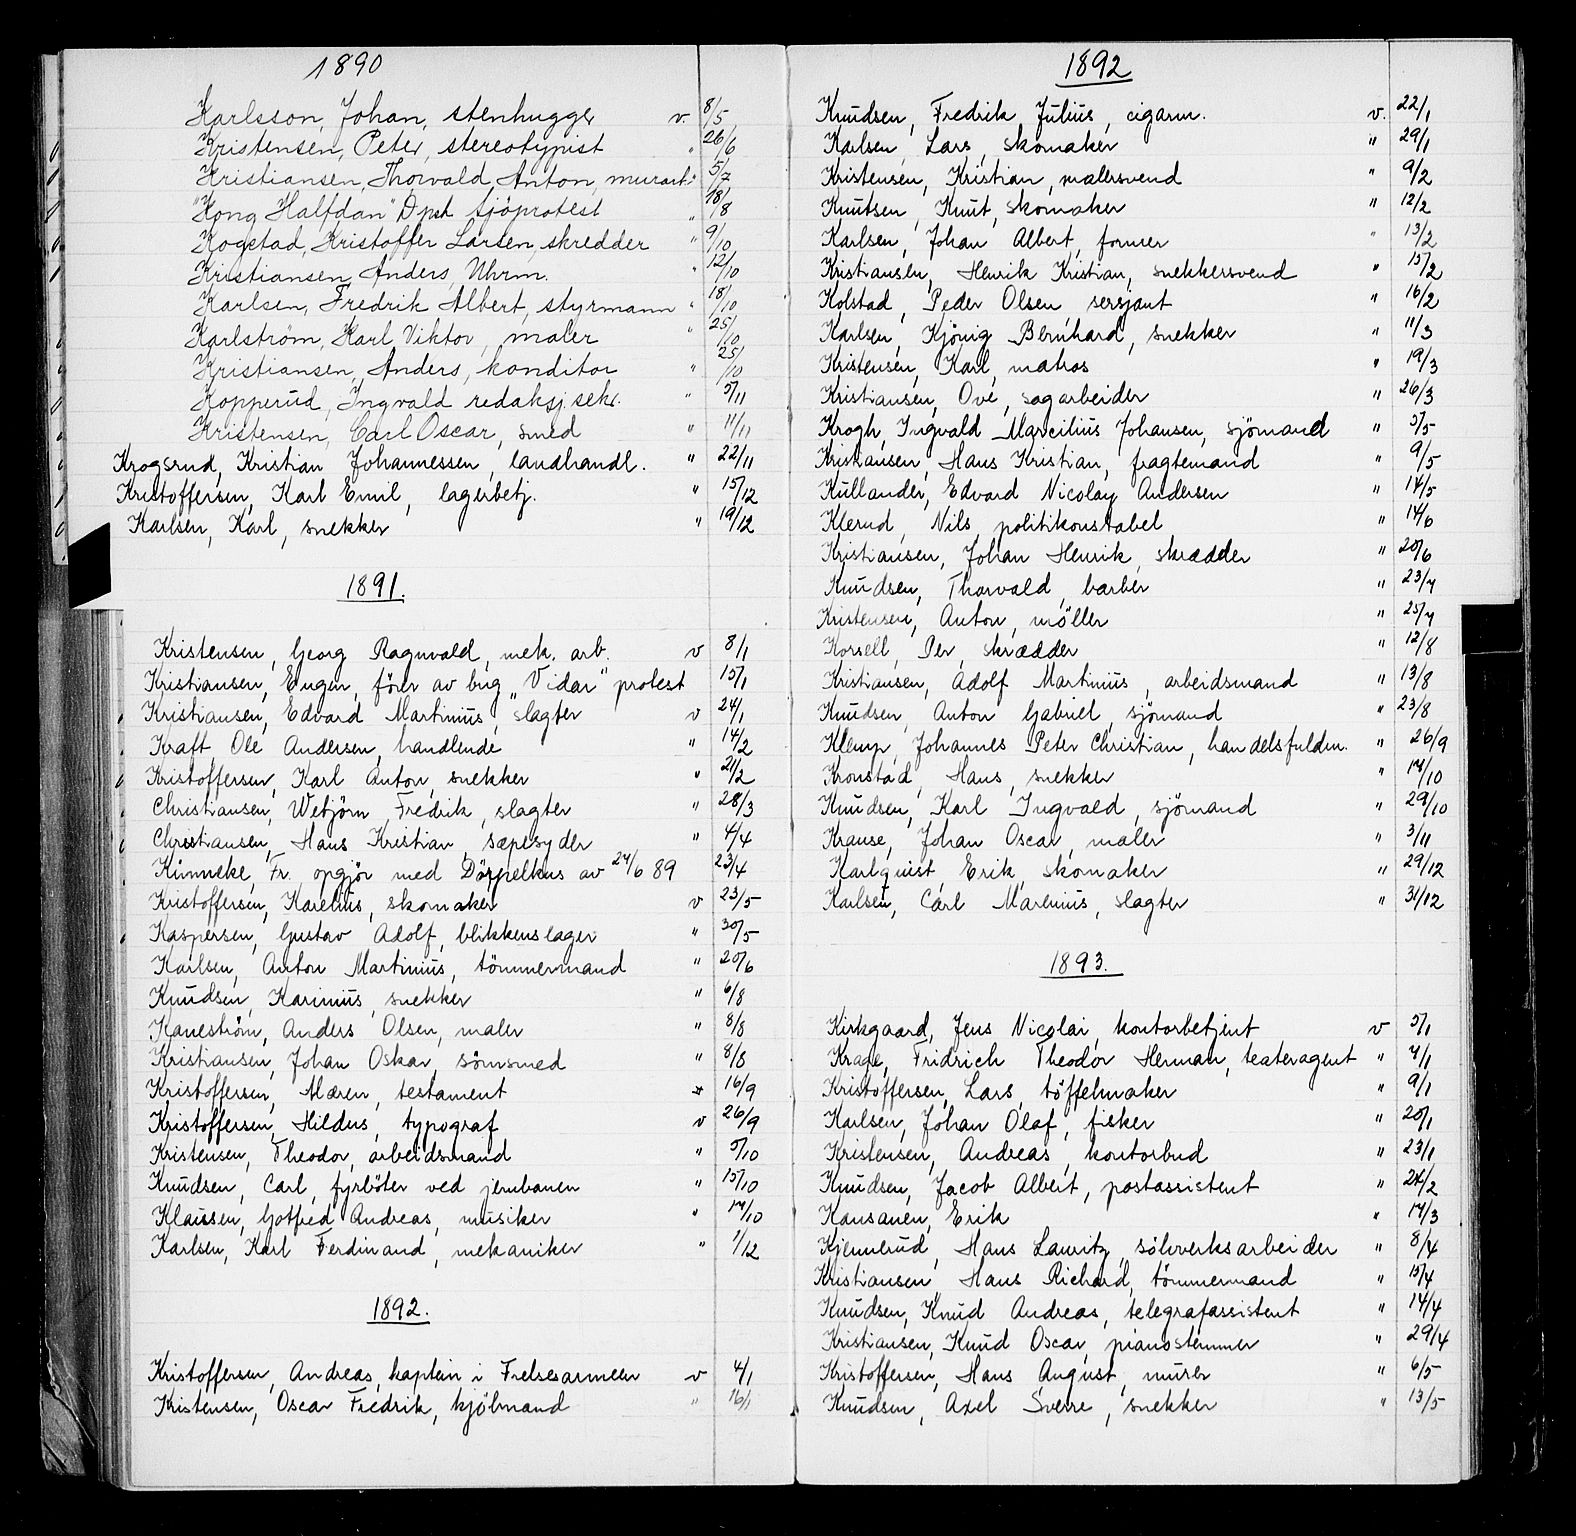 1890
Karlsson, Johan, stenhugger v. 8/5
Kristensen, Peter, stereotypist " 26/6
Kristiansen, Thorvald Anton, murarb. " 5/7
"Kong Halfdan" Dpsk sjöprotest " 18/8
Kogstad, Kristoffer Larsen, skredder " 9/10
Kristiansen, Anders, Uhrm. " 12/10
Karlsen, Fredrik Albert, styrmann " 18/10
Karlström, Karl Viktor, maler " 25/10
Kristiansen, Anders, konditor " 25/10
Kopperud, Ingvald redaksj.sekr. " 5/11
Kristensen, Carl Oscar, smed " 11/11
Krogsrud, Kristian Johannessen, landhandl. " 22/11
Kristoffersen, Karl Emil, lagerbetj. " 15/12
Karlsen, Karl, snekker " 19/12
1891.
Kristensen, Georg Ragnvald, mek. arb. v 8/1
Kristiansen, Eugen, förer av brig „Vidar" protest 15/1
Kristiansen, Edvard Martinius, slagter v 24/1
Kraft Ole Andersen, handlende " 14/2
Kristoffersen, Karl Anton, snekker " 21/2
Christiansen, Wetjörn Fredrik, slagter " 28/3
Christiansen, Hans Kristian, sæpesyder " 4/4
Kinneke, Fr. opgjör med Döppelkus av 24/6 89 23/4
Kristoffersen, Karelius, skomaker v 23/5
Kaspersen, Gustav Adolf, blikkenslager " 30/5
Karlsen, Anton Martinius, tömmermand " 20/6
Knudsen, Karinius, snekker " 6/8
Kaneström, Anders Olsen, maler " 8/8
Kristiansen, Johan Oskar sömsmed " 8/8
Kristoffersen, Maren, testament " 16/9
Kristoffersen, Hildus, typograf v 26/9
Kristensen, Theodor, arbeidsmand " 5/10
Knudsen, Carl, fyrböter ved jernbanen " 15/10
Klaussen, Gotfred Andreas, musiker " 17/10
Karlsen, Karl Ferdinand, mekaniker " 1/12
1892.
Kristoffersen, Andreas, kaptein i Frelsesarmeen v 4/1
Kristensen, Oscar Fredrik, kjölmand " 16/1
1892
Knudsen, Fredrik Julius, cigarm. v. 22/1
Karlsen, Lars, skomaker " 29/1
Kristensen, Kristian, malersvend " 9/2
Knutsen, Knut, skomaker " 12/2
Karlsen, Johan Albert, former " 13/2
Kristiansen, Henrik Kristian, snekkersvend " 15/2
Kolstad, Peder Olsen, sersjant " 16/2
Karlsen, Kjönig Bernhard, snekker " 11/3
Kristensen, Karl, matros " 19/3
Kristiansen, Ove, sagarbeider " 26/3
Krogh, Ingvald Marcilius Johansen, sjömand " 5/5
Kristiansen, Hans Kristian, fragtemand " 9/5
Kullander, Edvard Nicolay Andersen " 14/5
Klerud, Nils, politikonstabel " 14/6
Kristiansen, Johan Henrik, skrædder " 20/6
Knudsen, Thorvald, barber " 23/7
Kristensen, Anton, möller " 25/7
Korsell, Per, skrædder " 12/8
Kristiansen, Adolf Martinius, arbeidsmand " 13/8
Knudsen, Anton Gabriel, sjömand " 23/8
Klemp, Johannes Peter Christian, handelsfuldm. " 26/9
Kronstad, Hans, snekker " 17/10
Knudsen, Karl Ingvald, sjömand " 29/10
Krause, Johan Oscar, maler " 3/11
Karlquist, Erik, skomaker " 29/12
Karlsen, Carl Marenius, slagter " 31/12
1893.
Kirkgaard, Jens Nicolai, kontorbetjent v 5/1
Krage, Fridrich Theodor Herman, teateragent " 7/1
Kristoffersen, Lars, töffelmaker " 9/1
Karlsen, Johan Olaf, fisker " 20/1
Kristensen, Andreas, kontorbud " 23/1
Knudsen, Jacob Albert, postassistent " 24/2
Kansanen, Erik " 17/3
Kjennerud, Hans Lauritz, sölvverksarbeider " 8/4
Kristiansen, Hans Richard, tömmermand " 15/4
Knudsen, Knud Andreas, telegrafassistent " 14/4
Kristiansen, Knud Oscar, pianostemmer " 29/4
Kristoffersen, Hans August, murer " 6/5
Knudsen, Axel Sverre, snekker " 13/5